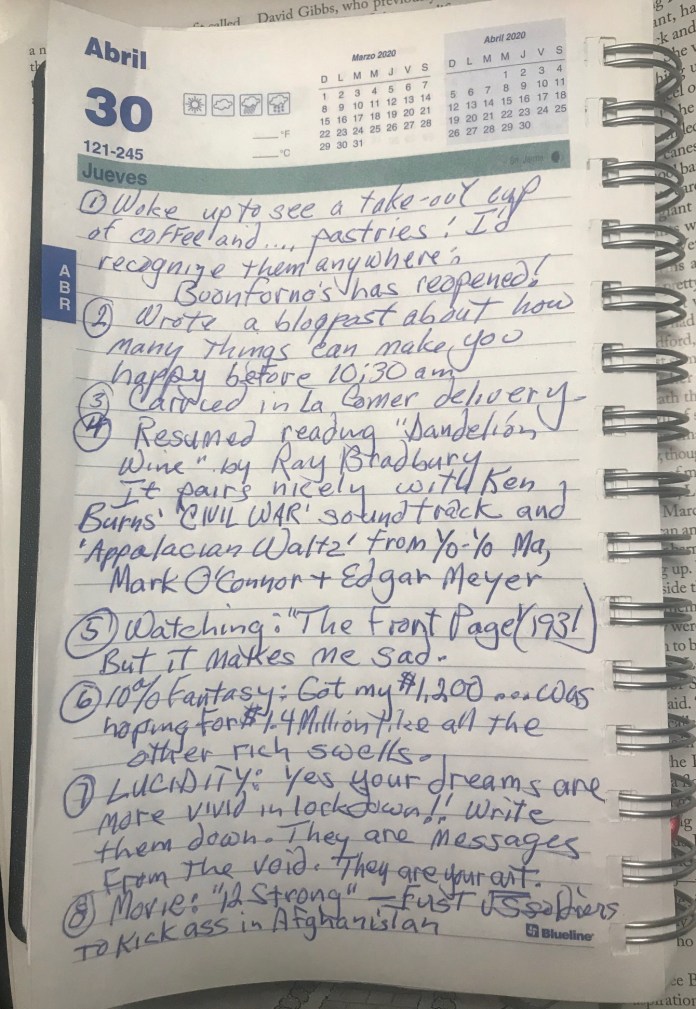 David Gibbs, who previo
Abril
30
121-245
Jueves
°F
°C
Marzo 2020
D L M M J V S
1 2 3 4 5 6 7
8 9 10 11 12 13 14
15 16 17 18 19 20 21
22 23 24 25 26 27 28
29 30 31
Abril 2020
D L M M J V S
1 2 3 4
5 6 7 8 9 10 11
12 13 14 15 16 17 18
19 20 21 22 23 24 25
26 27 28 29 30
A
B
R
① Woke up to see a take-out cup
of coffee and .... pastries! I'd
recognize them anywhere:
Buonforno's has reopened!
② Wrote a blogpost about how
many things can make you
happy before 10:30 am
③ Carried in La Comer delivery.
④ Resumed reading "Dandelion
Wine" by Ray Bradbury
It pairs nicely with Ken
Burns' 'CIVIL WAR' soundtrack and
'Appalacian Waltz' from Yo-Yo Ma,
Mark O'Connor + Edgar Meyer
⑤ Watching: "The Front Page" (1931)
But it makes me sad.
⑥ 10% Fantasy: Got my $1,200 ... was
hoping for $1.4 Million like all the
other rich swells.
⑦ LUCIDITY: Yes your dreams are
more vivid in lockdown!! Write
them down. They are messages
from the void. They are your art.
⑧ Movie: "12 Strong" — First US soldiers
to kick ass in Afghanistan
Blueline